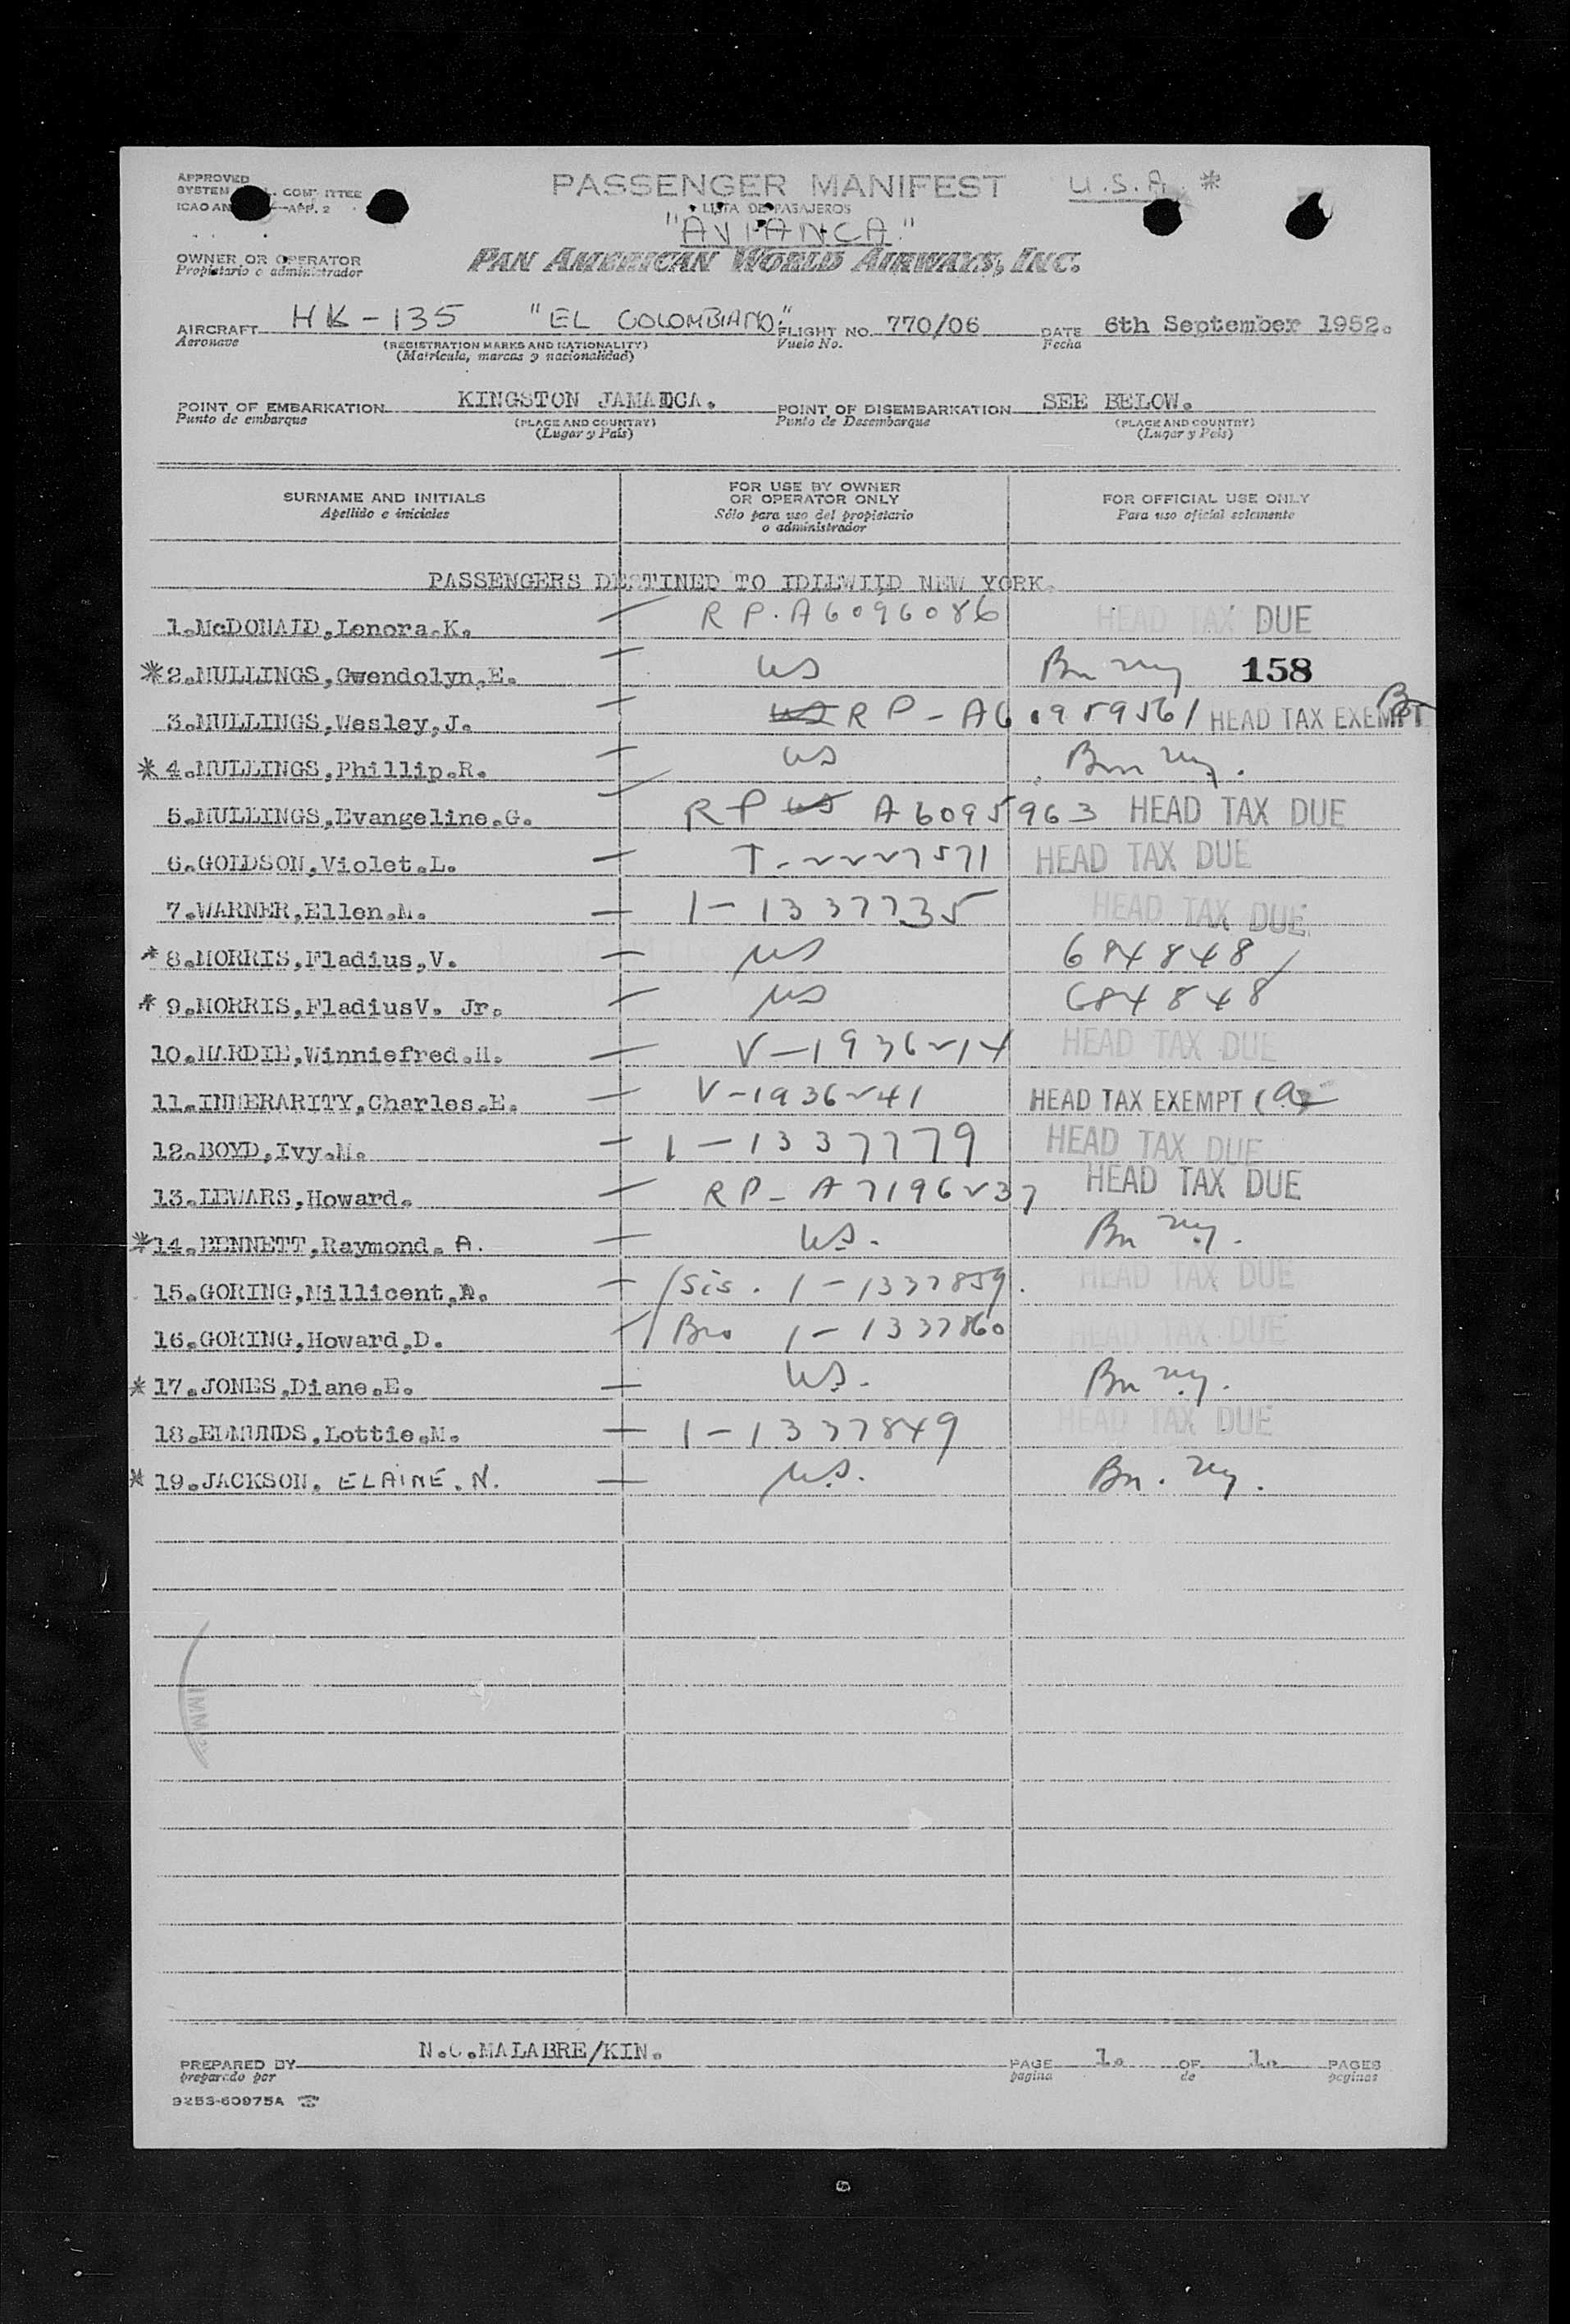 APPROVED
SYSTEM COM ITTEE
ICAO AN APP. 2
PASSENGER MANIFEST
LISTA DE PASAJEROS
U.S.A. *
"AVIANCA"
OWNER OR OPERATOR
Propietario o administrador
PAN AMERICAN WORLD AIRWAYS, INC.
AIRCRAFT HK-135 "EL COLOMBIANO." FLIGHT NO. 770/06 DATE 6th September 1952.
Aeronave (REGISTRATION MARKS AND NATIONALITY) Vuelo No. Fecha
(Matrícula, marcas y nacionalidad)
POINT OF EMBARKATION KINGSTON JAMAICA. POINT OF DISEMBARKATION SEE BELOW.
Punto de embarque (PLACE AND COUNTRY) Punto de Desembarque (PLACE AND COUNTRY)
(Lugar y País) (Lugar y País)
SURNAME AND INITIALS FOR USE BY OWNER OR OPERATOR ONLY FOR OFFICIAL USE ONLY
Apellido e iniciales Sólo para uso del propietario o administrador Para uso oficial solamente
PASSENGERS DESTINED TO IDILWIID NEW YORK.
1.McDONALD,Lenora.K. — RP.A6096086 HEAD TAX DUE
*2.MULLINGS,Gwendolyn,E. — US Bn ny 158
3.MULLINGS,Wesley,J. — US RP-A6095956/ HEAD TAX EXEMPT
*4.MULLINGS,Phillip.R. — US Bn ny.
5.MULLINGS,Evangeline.G. RP US A6095963 HEAD TAX DUE
6.GOLDSON,Violet.L. — T-2227571 HEAD TAX DUE
7.WARNER,Ellen.M. — 1-1337735 HEAD TAX DUE
*8.MORRIS,Fladius,V. — US 684848
*9.MORRIS,FladiusV. Jr. — US 684848
10.HARDIE,Winniefred.H. — V-1936214 HEAD TAX DUE
11.INNERARITY,Charles.E. — V-1936241 HEAD TAX EXEMPT
12.BOYD,Ivy.M. — 1-1337779 HEAD TAX DUE
13.LEWARS,Howard. — RP-A7196237 HEAD TAX DUE
*14.BENNETT,Raymond. A. — U.S. Bn ny.
15.GORING,Millicent,A. — Sis. 1-1337859. HEAD TAX DUE
16.GORING,Howard,D. — Bro 1-1337860 HEAD TAX DUE
*17.JONES,Diane.E. — U.S. Bn ny.
18.EDMUNDS,Lottie.M. — 1-1337849 HEAD TAX DUE
*19.JACKSON. ELAINE.N. — U.S. Bn. ny.
IMM
PREPARED BY N.C.MALABRE/KIN. PAGE 1. OF 1. PAGES
preparado por pagina de paginas
9253-60975A